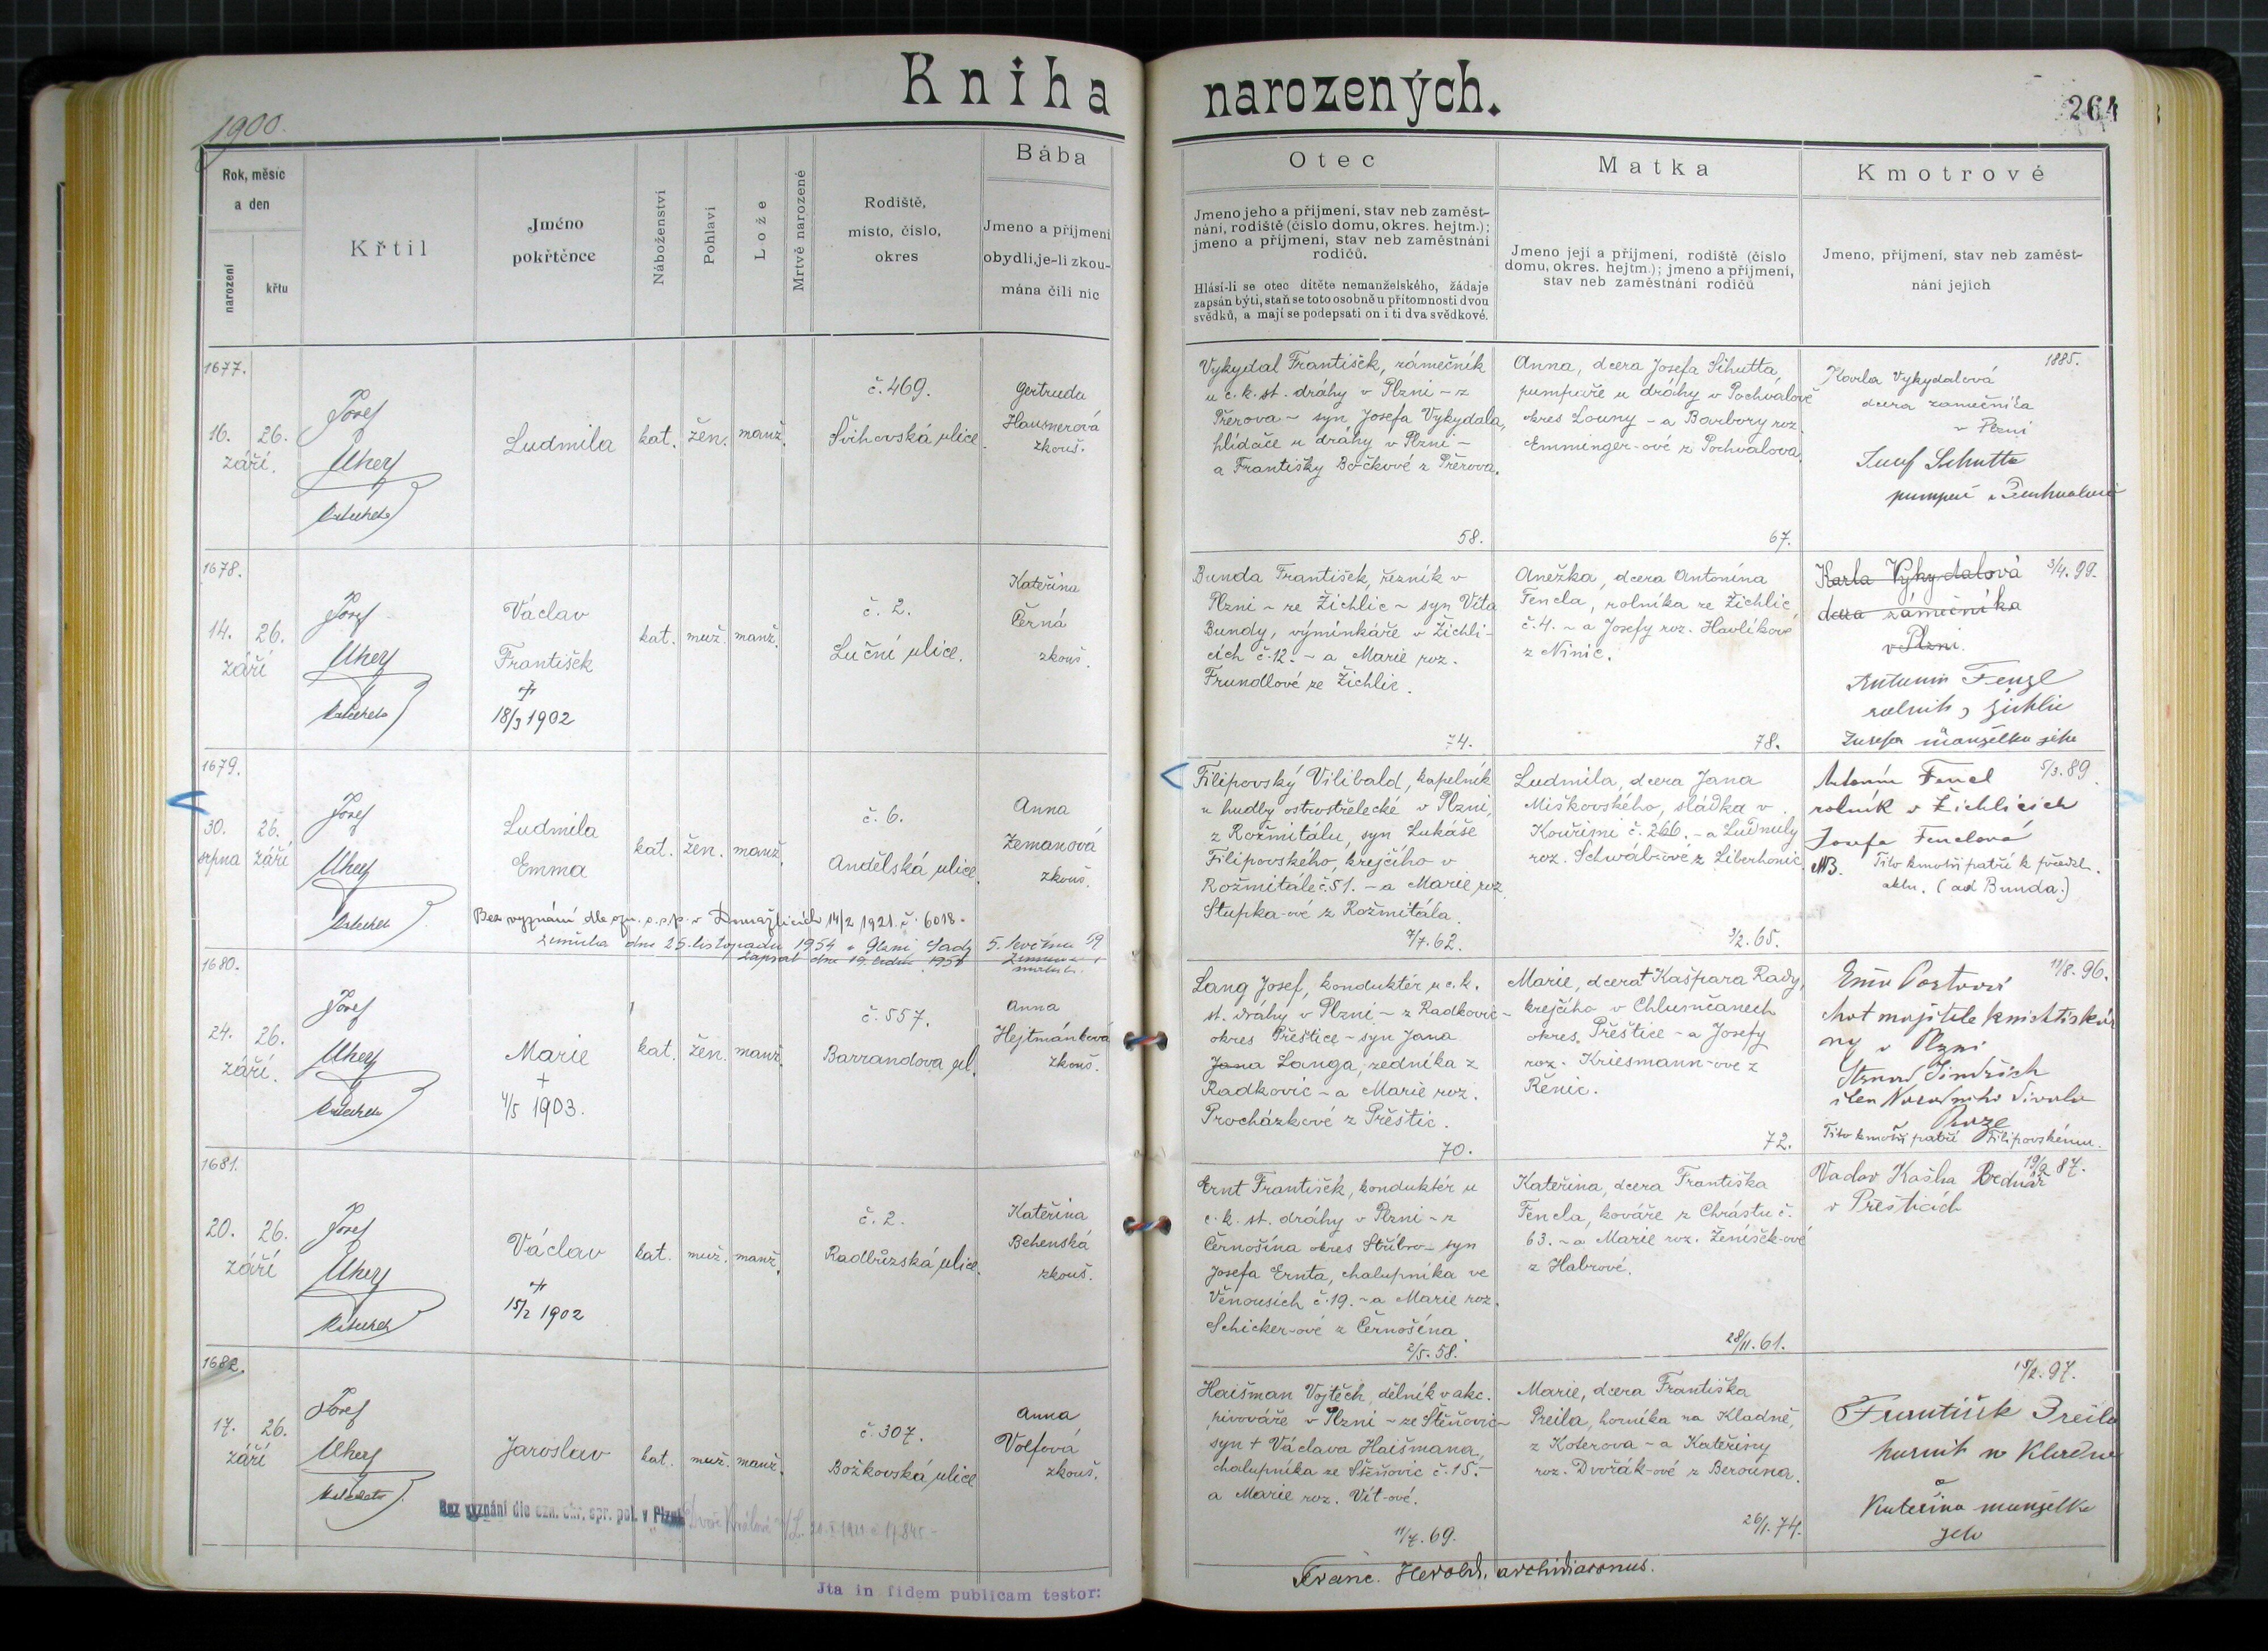 Kniha narozených.
264
1900.
Rok, měsíc
a den
narození
křtu
Křtil
Jméno
pokřtěnce
Náboženství
Pohlaví
Lože
Mrtvě narozené
Rodiště,
místo, číslo,
okres
Bába
Jmeno a příjmení
obydlí, je-li zkou-
mána čili nic
Otec
Jmeno jeho a příjmení, stav neb zaměst-
nání, rodiště (číslo domu, okres. hejtm.);
jmeno a příjmení, stav neb zaměstnání
rodičů.
Hlásí-li se otec dítěte nemanželského, žádaje
zapsán býti, staň se toto osobně u přítomnosti dvou
svědků, a mají se podepsati on i ti dva svědkové.
Matka
Jmeno její a příjmení, rodiště (číslo
domu, okres. hejtm.); jmeno a příjmení,
stav neb zaměstnání rodičů
Kmotrové
Jmeno, příjmení, stav neb zaměst-
nání jejich
1677.
16. 26.
září.
Josef
Uherý
Ludmila
kat. žen. manž.
č. 469.
Švihovská ulice.
Gertruda
Hausnerová
zkouš.
Vykydal František, zámečník
u c. k. st. dráhy v Plzni - z
Přerova - syn Josefa Vykydala,
hlídače u dráhy v Plzni -
a Františky Bočkové z Přerova.
58.
Anna, dcera Josefa Šihutta,
pumpaře u dráhy v Pochvalově
okres Louny - a Barbory roz.
Emminger-ové z Pochvalova.
67.
1885.
Karla Vykydalová
dcera zámečníka
v Plzni
Josef Schutta
1678.
14. 26.
září
Josef
Uherý
Václav
František
18/3 1902
kat. muž. manž.
č. 2.
Luční ulice.
Kateřina
Černá
zkouš.
Bunda František, řezník v
Plzni - ze Žichlic - syn Víta
Bundy, výmínkáře v Žichli-
cích č. 12. - a Marie roz.
Frundlové ze Žichlic.
74.
Anežka, dcera Antonína
Fencla, rolníka ze Žichlic,
č. 4. - a Josefy roz. Havlíkové
z Ninic.
78.
3/4. 99.
Karla Vykydalová
dcera zámečníka
v Plzni.
Antonín Fengl
rolník z Žichlic
Josefa manželka jeho
1679.
30. 26.
srpna září
Josef
Uherý
Ludmila
Emma
kat. žen. manž.
č. 6.
Andělská ulice.
Anna
Zemanová
zkouš.
Bez vyznání dle ozn. o. s. p. v Domažlicích 14/2 1921. č. 6018.
zemřela dne 25. listopadu 1954 v Plzni
Filipovský Vilibald, kapelník
u hudby ostrostřelecké v Plzni,
z Rožmitálu, syn Lukáše
Filipovského, krejčího v
Rožmitále č. 51. - a Marie roz.
Stupka-ové z Rožmitála.
7/7. 62.
Ludmila, dcera Jana
Miškovského, sládka v
Kouřimi č. 266. - a Ludmily
roz. Schwábrové z Liberhonic
3/2. 65.
5/3. 89.
Antonín Fencl
rolník v Žichlicích
Josefa Fenclová
NB. Tito kmotři patří k předch.
aktu. (ad Bunda.)
1680.
24. 26.
září.
Josef
Uherý
Marie
+
4/5 1903.
kat. žen. manž.
č. 557.
Barrandova ul.
Anna
Hejtmánková
zkouš.
Lang Josef, konduktér u c. k.
st. dráhy v Plzni - z Radkovic -
okres Přeštice - syn Jana
Jana Langa, zedníka z
Radkovic - a Marie roz.
Procházkové z Přeštic.
70.
Marie, dcera + Kašpara Rady,
krejčího v Chlumčanech
okres. Přeštice - a Josefy
roz. Kriesmann-ové z
Řenic.
72.
11/8. 96.
choť majitele knihtiskár
ny v Plzni
Jindřich
člen Národního Divadla
Praze
Tito kmotři patří Filipovskému.
1681.
20. 26.
září
Josef
Uherý
Václav
15/2 1902
kat. muž. manž.
č. 2.
Radbůzská ulice.
Kateřina
Behenská
zkouš.
Ernt František, konduktér u
c. k. st. dráhy v Plzni - z
Černošína okres Stříbro - syn
Josefa Ernta, chalupníka ve
Věnousích č. 19. - a Marie roz.
Schicker-ové z Černošína.
2/5. 58.
Kateřina, dcera Františka
Fencla, kováře z Chrástu č.
63. - a Marie roz. Ženíšek-ové
z Habrové.
28/11. 61.
19/2 87.
Václav Kašha Bednář
v Přešticích
1682.
17. 26.
září
Josef
Uherý
Jaroslav
kat. muž. manž.
č. 307.
Božkovská ulice
Anna
Volfová
zkouš.
Bez vyznání dle ozn. okr. spr. pol. v Plzni
Haišman Vojtěch, dělník v akc.
pivováře v Plzni - ze Štěňovic -
syn + Václava Haišmana,
chalupníka ze Štěňovic č. 15. -
a Marie roz. Vít-ové.
11/4. 69.
Marie, dcera Františka
Preila, horníka na Kladně,
z Koterova - a Kateřiny
roz. Dvořák-ové z Berouna.
26/1. 74.
15/2. 97.
František Preila
horník na Kladně
a
Kateřina manželka
jeho
Jta in fidem publicam testor:
Franc. Herold, archidiaconus.